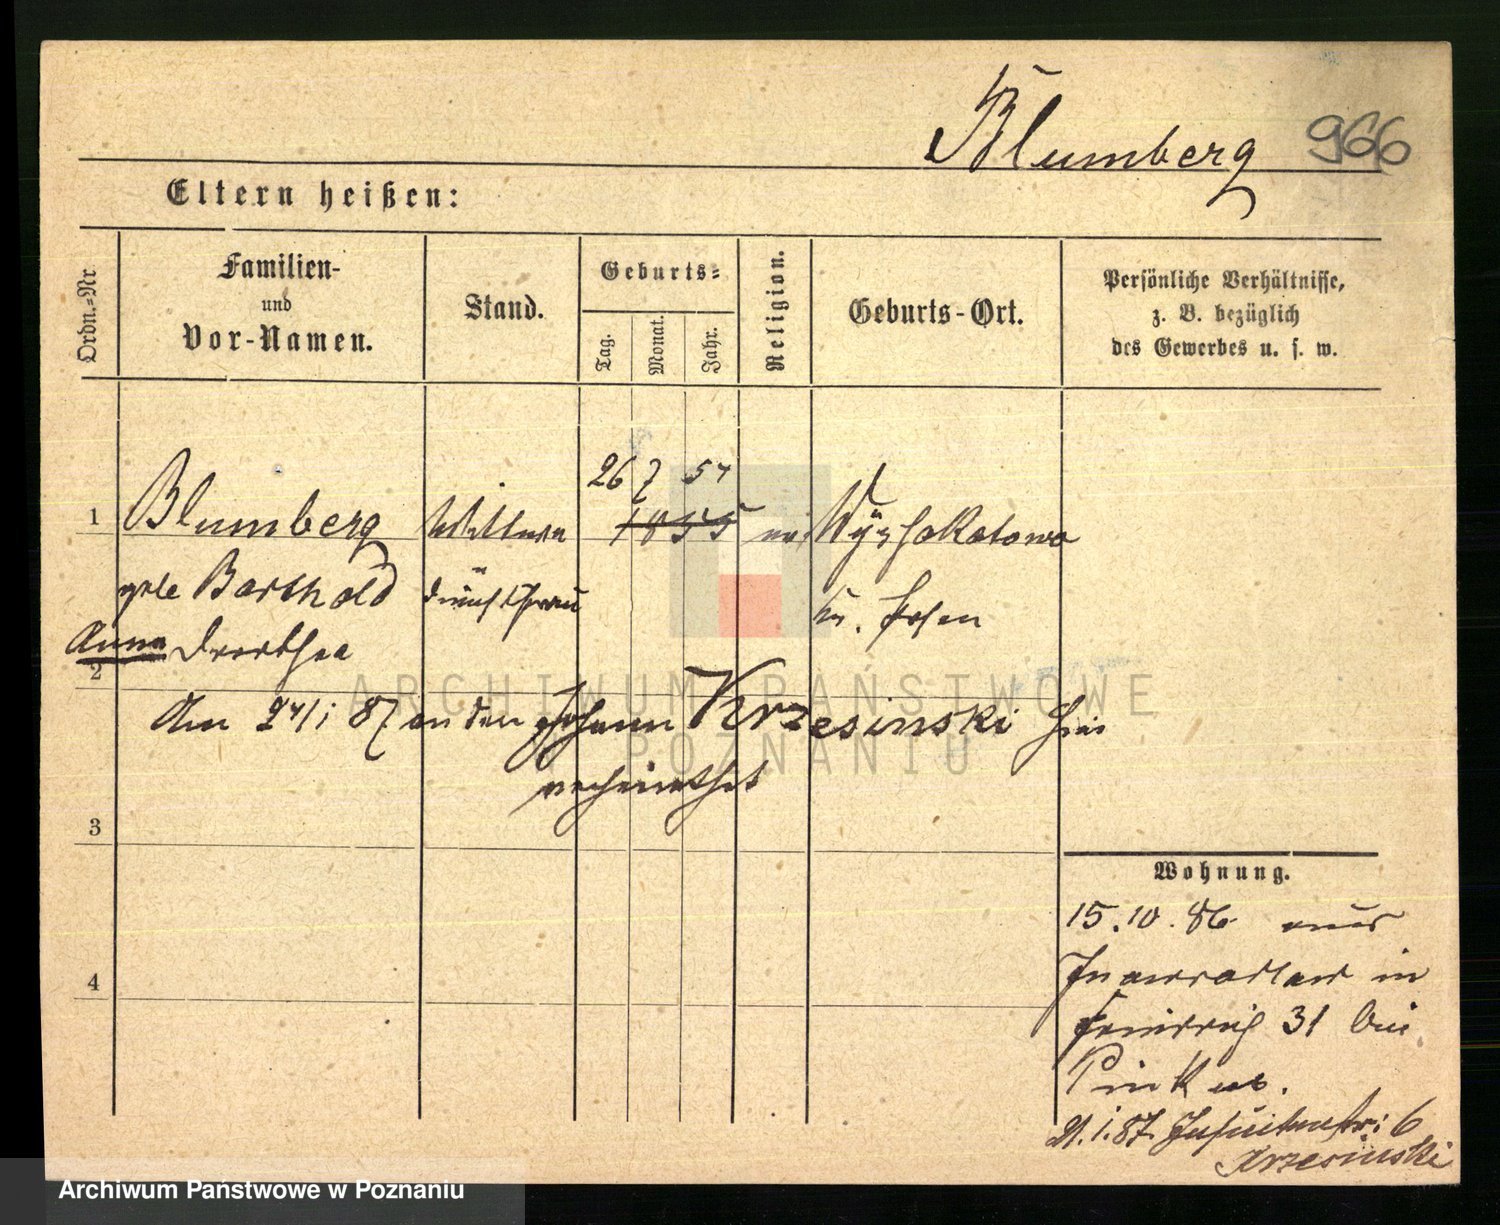 Blumberg 966
Eltern heißen:
Ordn.=Nr.
Familien-
und
Vor-Namen.
Stand.
Geburts=
Tag.
Monat.
Jahr.
Religion.
Geburts-Ort.
Persönliche Verhältnisse,
z. B. bezüglich
des Gewerbes u. s. w.
26 7 57
1 Blumberg Wittwe 1855 ev Wyssokatowo
gebe Barthold dienstfrau Kr. Posen
Anna Dorothea
2
Am 24/1 87 an den Johann Krzesinski hier
verheirathet
3
Wohnung.
15.10.86 aus
Inowrazlaw in
31 bei
4
Pinkus.
21.1.87. Jesuitenstr: 6
Krzesinski
ARCHIWUM PAŃSTWOWE
W POZNANIU
Archiwum Państwowe w Poznaniu